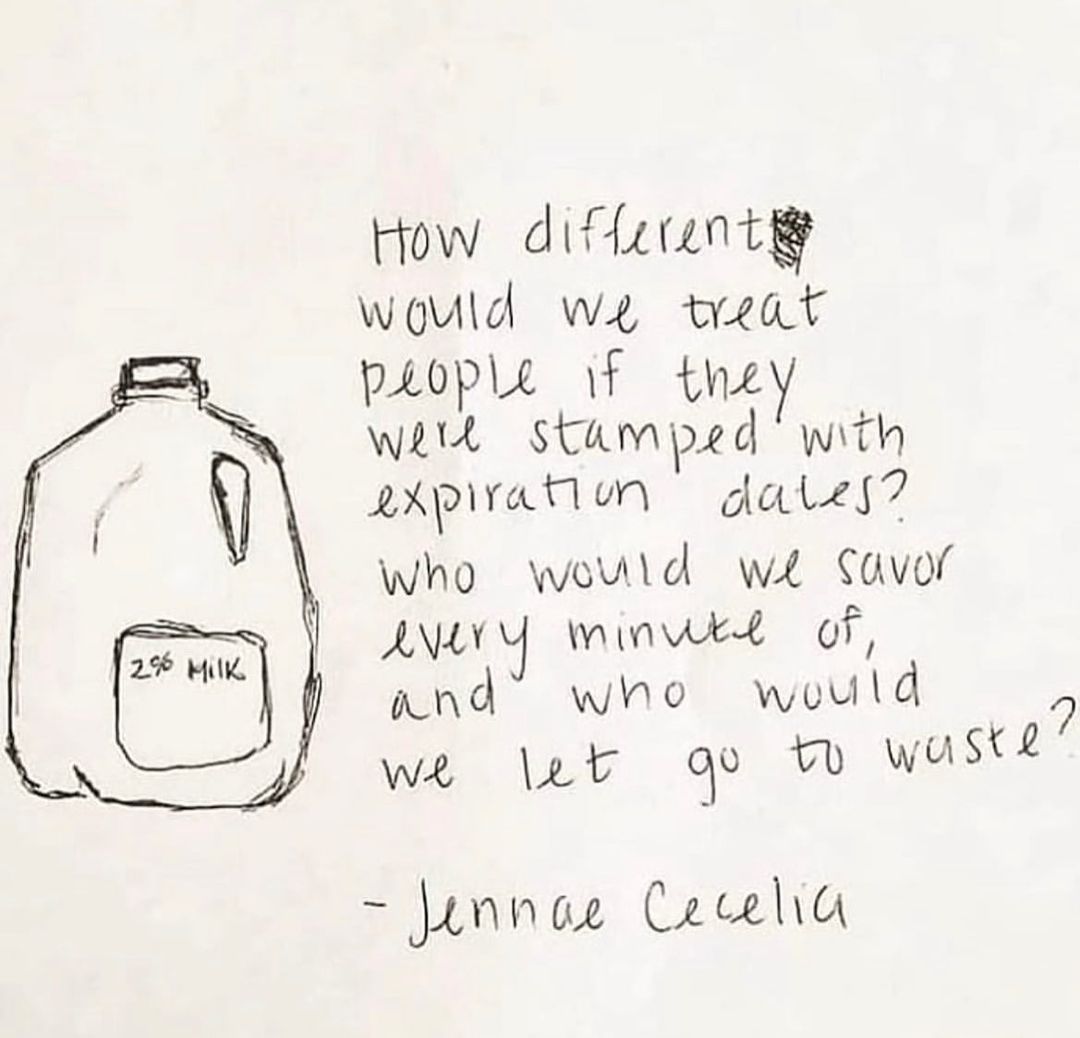 How different
would we treat
people if they
were stamped with
expiration dates?
who would we savor
every minute of,
and who would
we let go to waste?
- Jennae Cecelia
2% Milk